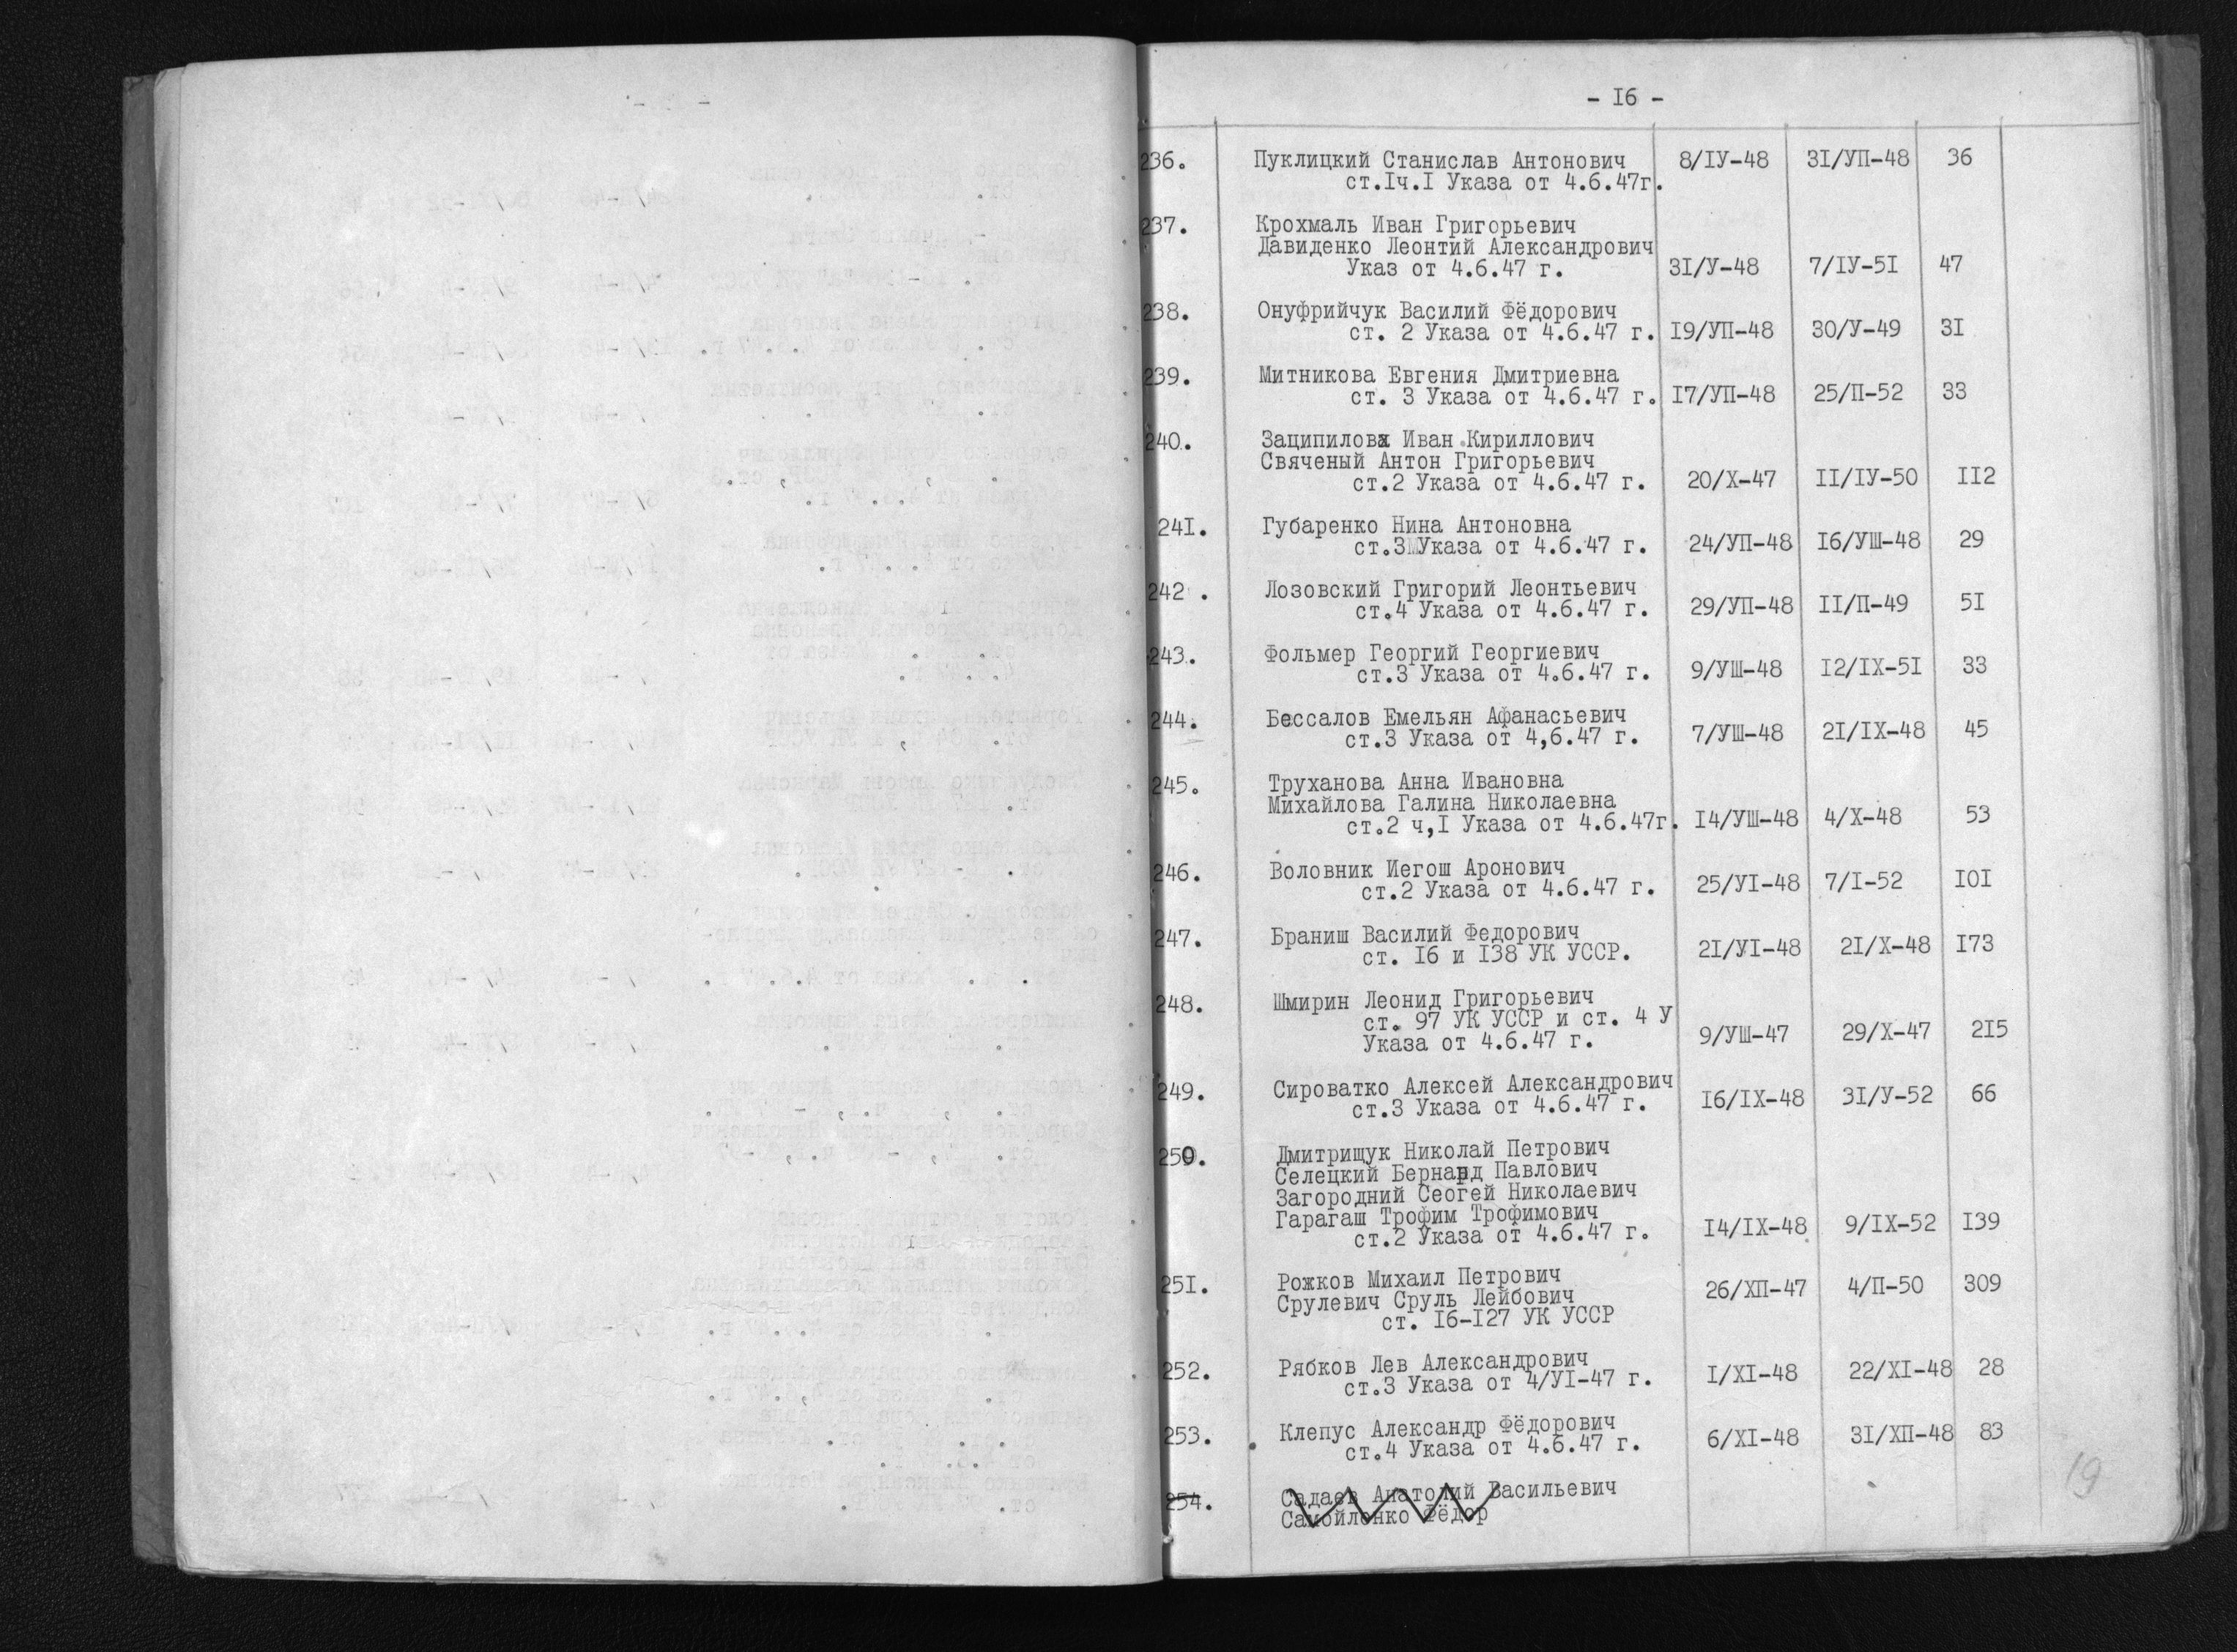 - I6 -
236. Пуклицкий Станислав Антонович 8/IУ-48 3I/УП-48 36
ст.Iч.I Указа от 4.6.47г.
237. Крохмаль Иван Григорьевич
Давиденко Леонтий Александрович
Указ от 4.6.47 г. 3I/У-48 7/IУ-5I 47
238. Онуфрийчук Василий Фёдорович
ст. 2 Указа от 4.6.47 г. I9/УП-48 30/У-49 3I
239. Митникова Евгения Дмитриевна
ст. 3 Указа от 4.6.47 г. I7/УП-48 25/П-52 33
240. Заципилова Иван Кириллович
Свяченый Антон Григорьевич
ст.2 Указа от 4.6.47 г. 20/Х-47 II/IУ-50 II2
24I. Губаренко Нина Антоновна
ст.3 Указа от 4.6.47 г. 24/УП-48 I6/УШ-48 29
242. Лозовский Григорий Леонтьевич
ст.4 Указа от 4.6.47 г. 29/УП-48 II/П-49 5I
243. Фольмер Георгий Георгиевич
ст.3 Указа от 4.6.47 г. 9/УШ-48 I2/IХ-5I 33
244. Бессалов Емельян Афанасьевич
ст.3 Указа от 4,6.47 г. 7/УШ-48 2I/IХ-48 45
245. Труханова Анна Ивановна
Михайлова Галина Николаевна
ст.2 ч,I Указа от 4.6.47г. I4/УШ-48 4/Х-48 53
246. Воловник Иегош Аронович
ст.2 Указа от 4.6.47 г. 25/УI-48 7/I-52 I0I
247. Браниш Василий Федорович
ст. I6 и I38 УК УССР. 2I/УI-48 2I/Х-48 I73
248. Шмирин Леонид Григорьевич
ст. 97 УК УССР и ст. 4 У
Указа от 4.6.47 г. 9/УШ-47 29/Х-47 2I5
249. Сироватко Алексей Александрович
ст.3 Указа от 4.6.47 г. I6/IХ-48 3I/У-52 66
250. Дмитрищук Николай Петрович
Селецкий Бернард Павлович
Загородний Сеогей Николаевич
Гарагаш Трофим Трофимович
ст.2 Указа от 4.6.47 г. I4/IХ-48 9/IХ-52 I39
25I. Рожков Михаил Петрович 26/ХП-47 4/П-50 309
Срулевич Сруль Лейбович
ст. I6-I27 УК УССР
252. Рябков Лев Александрович
ст.3 Указа от 4/УI-47 г. I/ХI-48 22/ХI-48 28
253. Клепус Александр Фёдорович
ст.4 Указа от 4.6.47 г. 6/ХI-48 3I/ХП-48 83
254. Садаев Анатолий Васильевич
Самойленко Фёдор
19